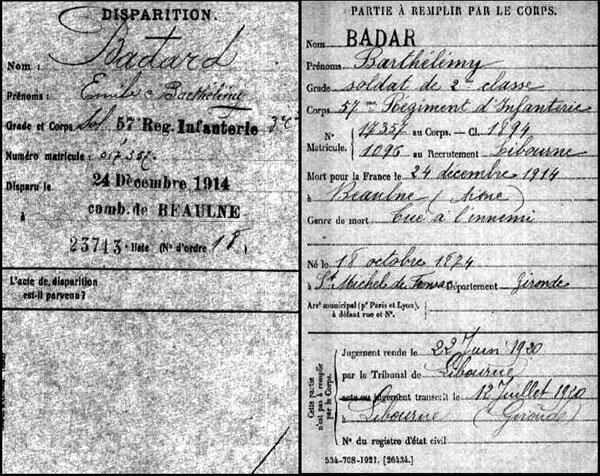 DISPARITION.
Nom : Badard
Prénoms : Emile Barthélémy
Grade et Corps Sol 57e Reg. Infanterie
Numéro matricule : 017357.
Disparu le 24 Décembre 1914
à comb. de BEAULNE
23713 - liste (N° d'ordre 18)
L'acte de disparition
est-il parvenu ?
PARTIE À REMPLIR PAR LE CORPS.
Nom BADAR
Prénoms Barthélémy
Grade soldat de 2e classe
Corps 57me Régiment d'Infanterie
N° 17357 au Corps. — Cl. 1894
Matricule. 1096 au Recrutement Libourne
Mort pour la France le 24 décembre 1914
à Beaulne (Aisne)
Genre de mort tué à l'ennemi
Né le 18 octobre 1874
à St Michel de Fronsac Département Gironde
Arrt municipal (pr Paris et Lyon),
à défaut rue et N°.
Cette partie
n'est pas à remplir
par le Corps.
Jugement rendu le 22 Juin 1920
par le Tribunal de Libourne
acte ou jugement transcrit le 12 Juillet 1920
à Libourne (Gironde)
N° du registre d'état civil
534-708-1921. [26434.]